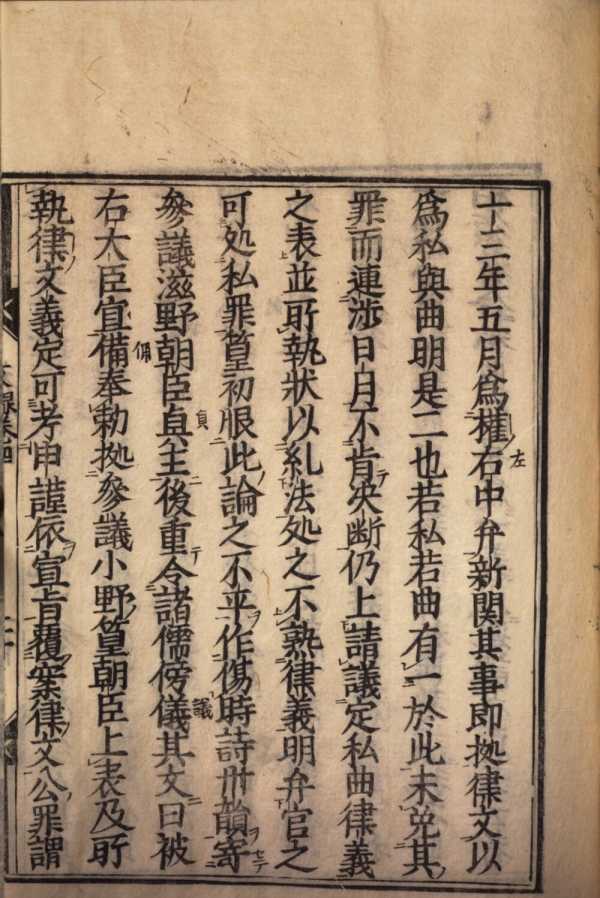 十三年五月為権右中弁新関其事即拠律文以
為私與曲明是二也若私若曲有一於此未免其
罪而連渉日月不肯决断仍上請議定私曲律義
之表並所執状以糺法処之不熟律義明弁官之
可処私罪篁初服此論之不平作傷時詩卅韻寄
参議滋野朝臣貞主後重令諸儒傍儀其文曰被
右大臣宣備奉勅拠参議小野篁朝臣上表及所
執律文義定可考申謹依宣旨覆案律文公罪謂
左
貞
議
佩
文録巻四